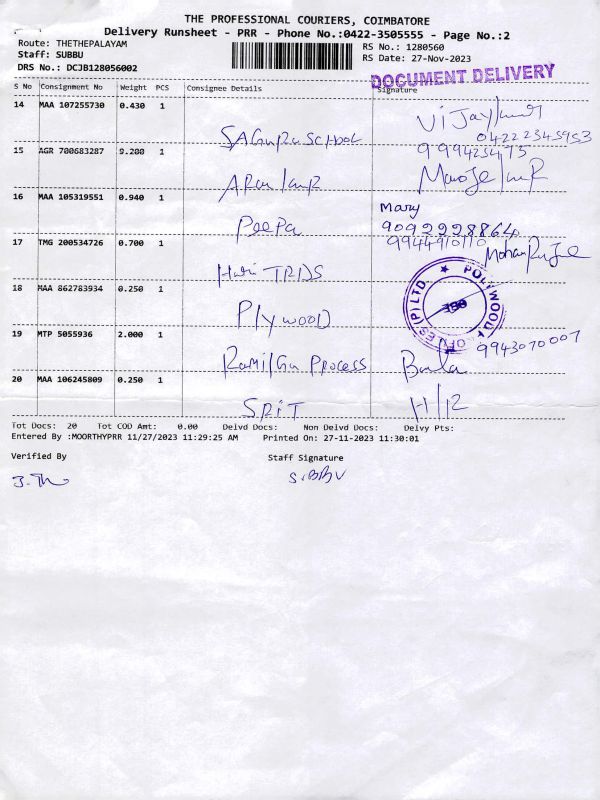 THE PROFESSIONAL COURIERS, COIMBATORE
Delivery Runsheet - PRR - Phone No.:0422-3505555 - Page No.:2
Route: THETHEPALAYAM
RS No.: 1280560
Staff: SUBBU
RS Date: 27-Nov-2023
DRS No.: DCJB128056002
DOCUMENT DELIVERY
S No Consignment No Weight PCS Consignee Details Signature
14 MAA 107255730 0.430 1
SCHOOL
15 AGR 700683287 9.200 1
16 MAA 105319551 0.940 1
Mary
PeePa
9092998864
17 TMG 200534726 0.700 1
9944910110
18 MAA 862783934 0.250 1
Plywood
19 MTP 5055936 2.000 1
Process
Bala
9943070007
20 MAA 106245809 0.250 1
SRiT
Tot Docs: 20 Tot COD Amt: 0.00 Delvd Docs: Non Delvd Docs: Delvy Pts:
Entered By :MOORTHYPRR 11/27/2023 11:29:25 AM Printed On: 27-11-2023 11:30:01
Verified By Staff Signature